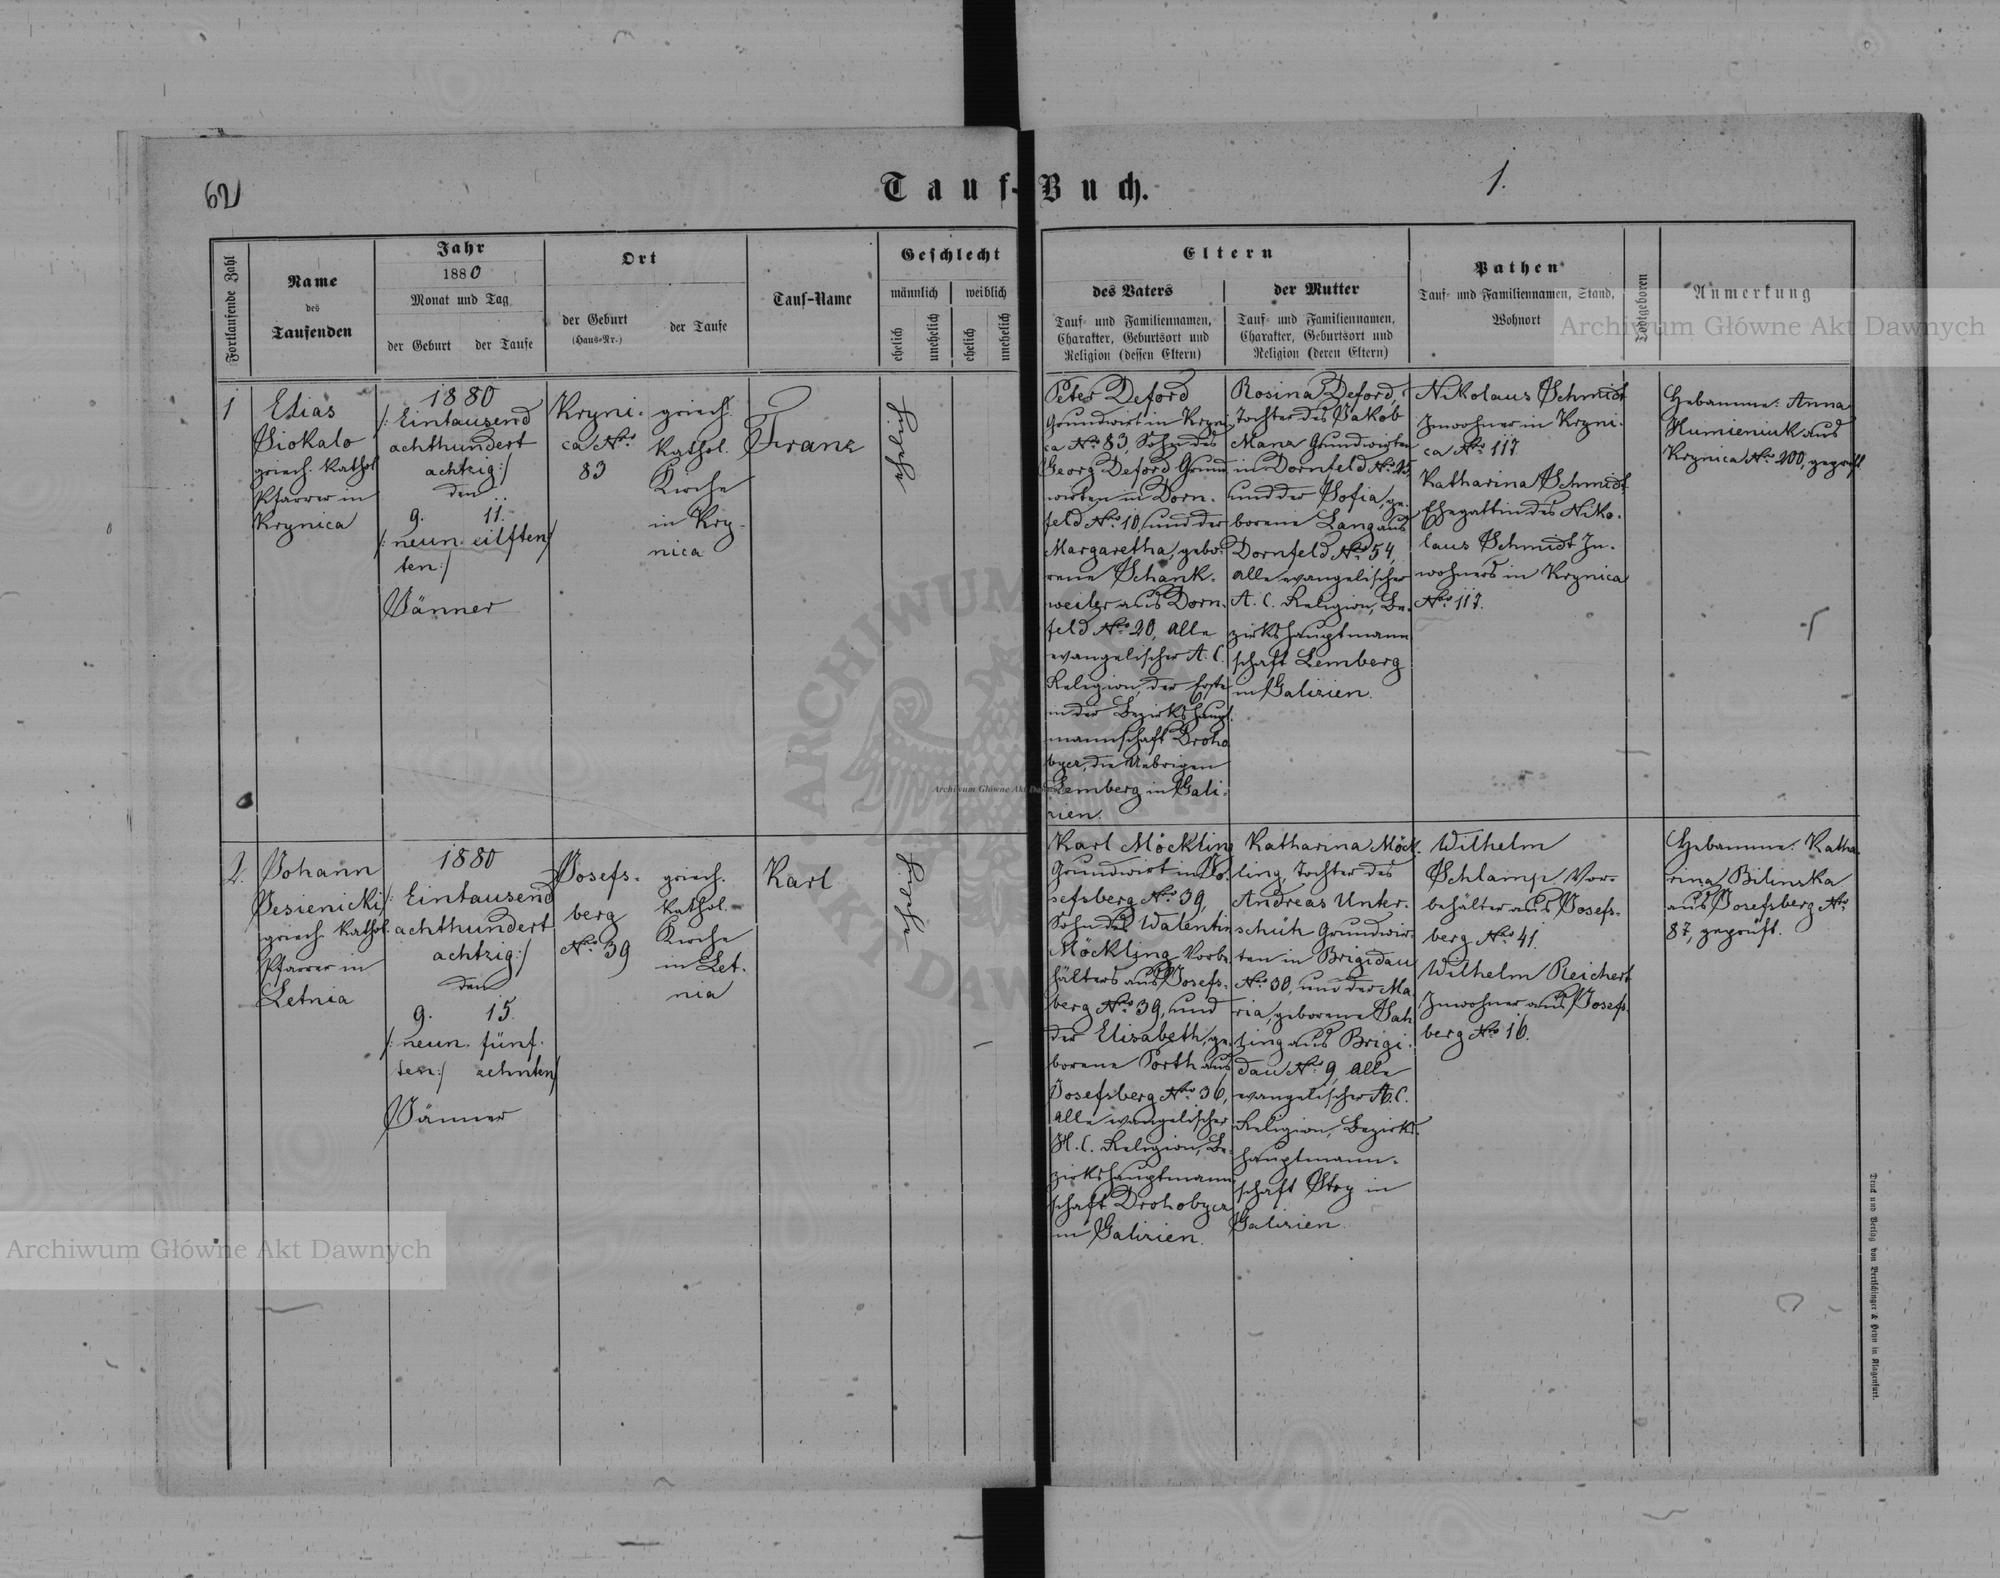 62
Tauf-Buch.
1.
Fortlaufende Zahl
Name
des
Taufenden
Jahr
1880
Monat und Tag
der Geburt
der Taufe
Ort
der Geburt
(Haus-Nr.)
der Taufe
Tauf-Name
Geschlecht
männlich
weiblich
ehelich
unehelich
ehelich
unehelich
Eltern
des Vaters
Tauf- und Familiennamen,
Charakter, Geburtsort und
Religion (dessen Eltern)
der Mutter
Tauf- und Familiennamen,
Charakter, Geburtsort und
Religion (deren Eltern)
Pathen
Tauf- und Familiennamen, Stand,
Wohnort
Todtgeboren
Anmerkung
Archiwum Główne Akt Dawnych
1
Elias
Siokalo
griech. kathol
Pfarrer in
Krynica
1880
/: Eintausend
achthundert
achtzig :/
den
9. 11.
/: neun. eilften/
ten :/
Jänner
Kryni-
ca Nro
83
griech.
kathol.
Kirche
in Kry-
nica
Franz
Peter Deford
Grundwirt in Kryni
ca Nro 83, Sohn des
Georg Deford Grund
wirten in Dorn-
feld Nro 10, und der
Margaretha, gebo-
rene Schank-
weiler aus Dorn-
feld Nro 20, alle
evangelischer A. C.
Religion, der Erste
in der Bezirkshaupt-
mannschaft Droho
bycz, die Uebrigen
Lemberg in Gali-
zien.
Rosina Deford,
Tochter des Jakob
Manz Grundwirten
in Dornfeld No 25,
und der Sofia, ge-
borene Lang aus
Dornfeld Nro 54,
alle evangelischer
A. C. Religion, Be-
zirkshauptmann
schaft Lemberg
in Galizien.
Nikolaus Schmidt
Inwohner in Kryni-
ca Nro 117.
Katharina Schmidt
Ehegattin des Niko-
laus Schmidt In-
wohners in Krynica
Nro 117.
Hebamme: Anna
Humieniuk aus
Krynica No 200, geprüft
2.
Johann
Jesienicki
griech. kathol.
Pfarrer in
Letnia
1880
/: Eintausend
achthundert
achtzig :/
den
9. 15.
/: neun. fünf-
ten :/ zehnten/
Jänner
Josefs-
berg
Nro 39
griech.
kathol.
Kirche
in Let-
nia
Karl
Karl Möckling
Grundwirt in Jo-
sefsberg Nro 39,
Sohn des Walentin
Möckling Vorbe
hälters aus Josefs-
berg Nro 39, und
der Elisabeth, ge-
borene Porth aus
Josefsberg Nro 36,
alle evangelischer
H. C. Religion, Be-
zirkshauptmann
schaft Drohobycz
in Galizien.
Katharina Möck-
ling, Tochter des
Andreas Unter-
schüh Grundwir-
ten in Brigidau
Nro 30, und der Ma
ria, geborene
aus Brigi-
dau Nro 9, alle
evangelischer A. C.
Religion, Bezirks-
hauptmann-
schaft Stry in
Galizien.
Wilhelm
Schlamp Vor-
behälter aus Josefs-
berg Nro 41.
Wilhelm Reichert
Inwohner aus Josefs-
berg Nro 16.
Hebamme: Katha-
rina Bilinska
aus Josefsberg Nro
87, geprüft.
Archiwum Główne Akt Dawnych
Druck und Verlag von Bertschinger & Heyn in Klagenfurt.